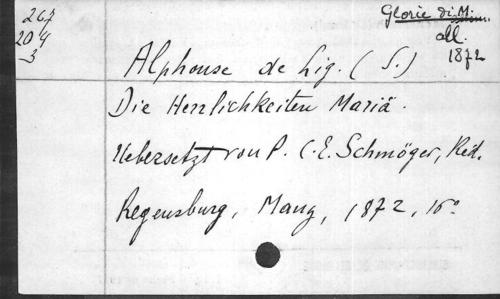 267
204
3
Glorie di M.
all.
1872
Alphonse de Lig. (S.)
Die Herrlichkeiten Mariä.
Uebersetzt von P. C. E. Schmöger, Red.
Regensburg, Manz, 1872, 16°